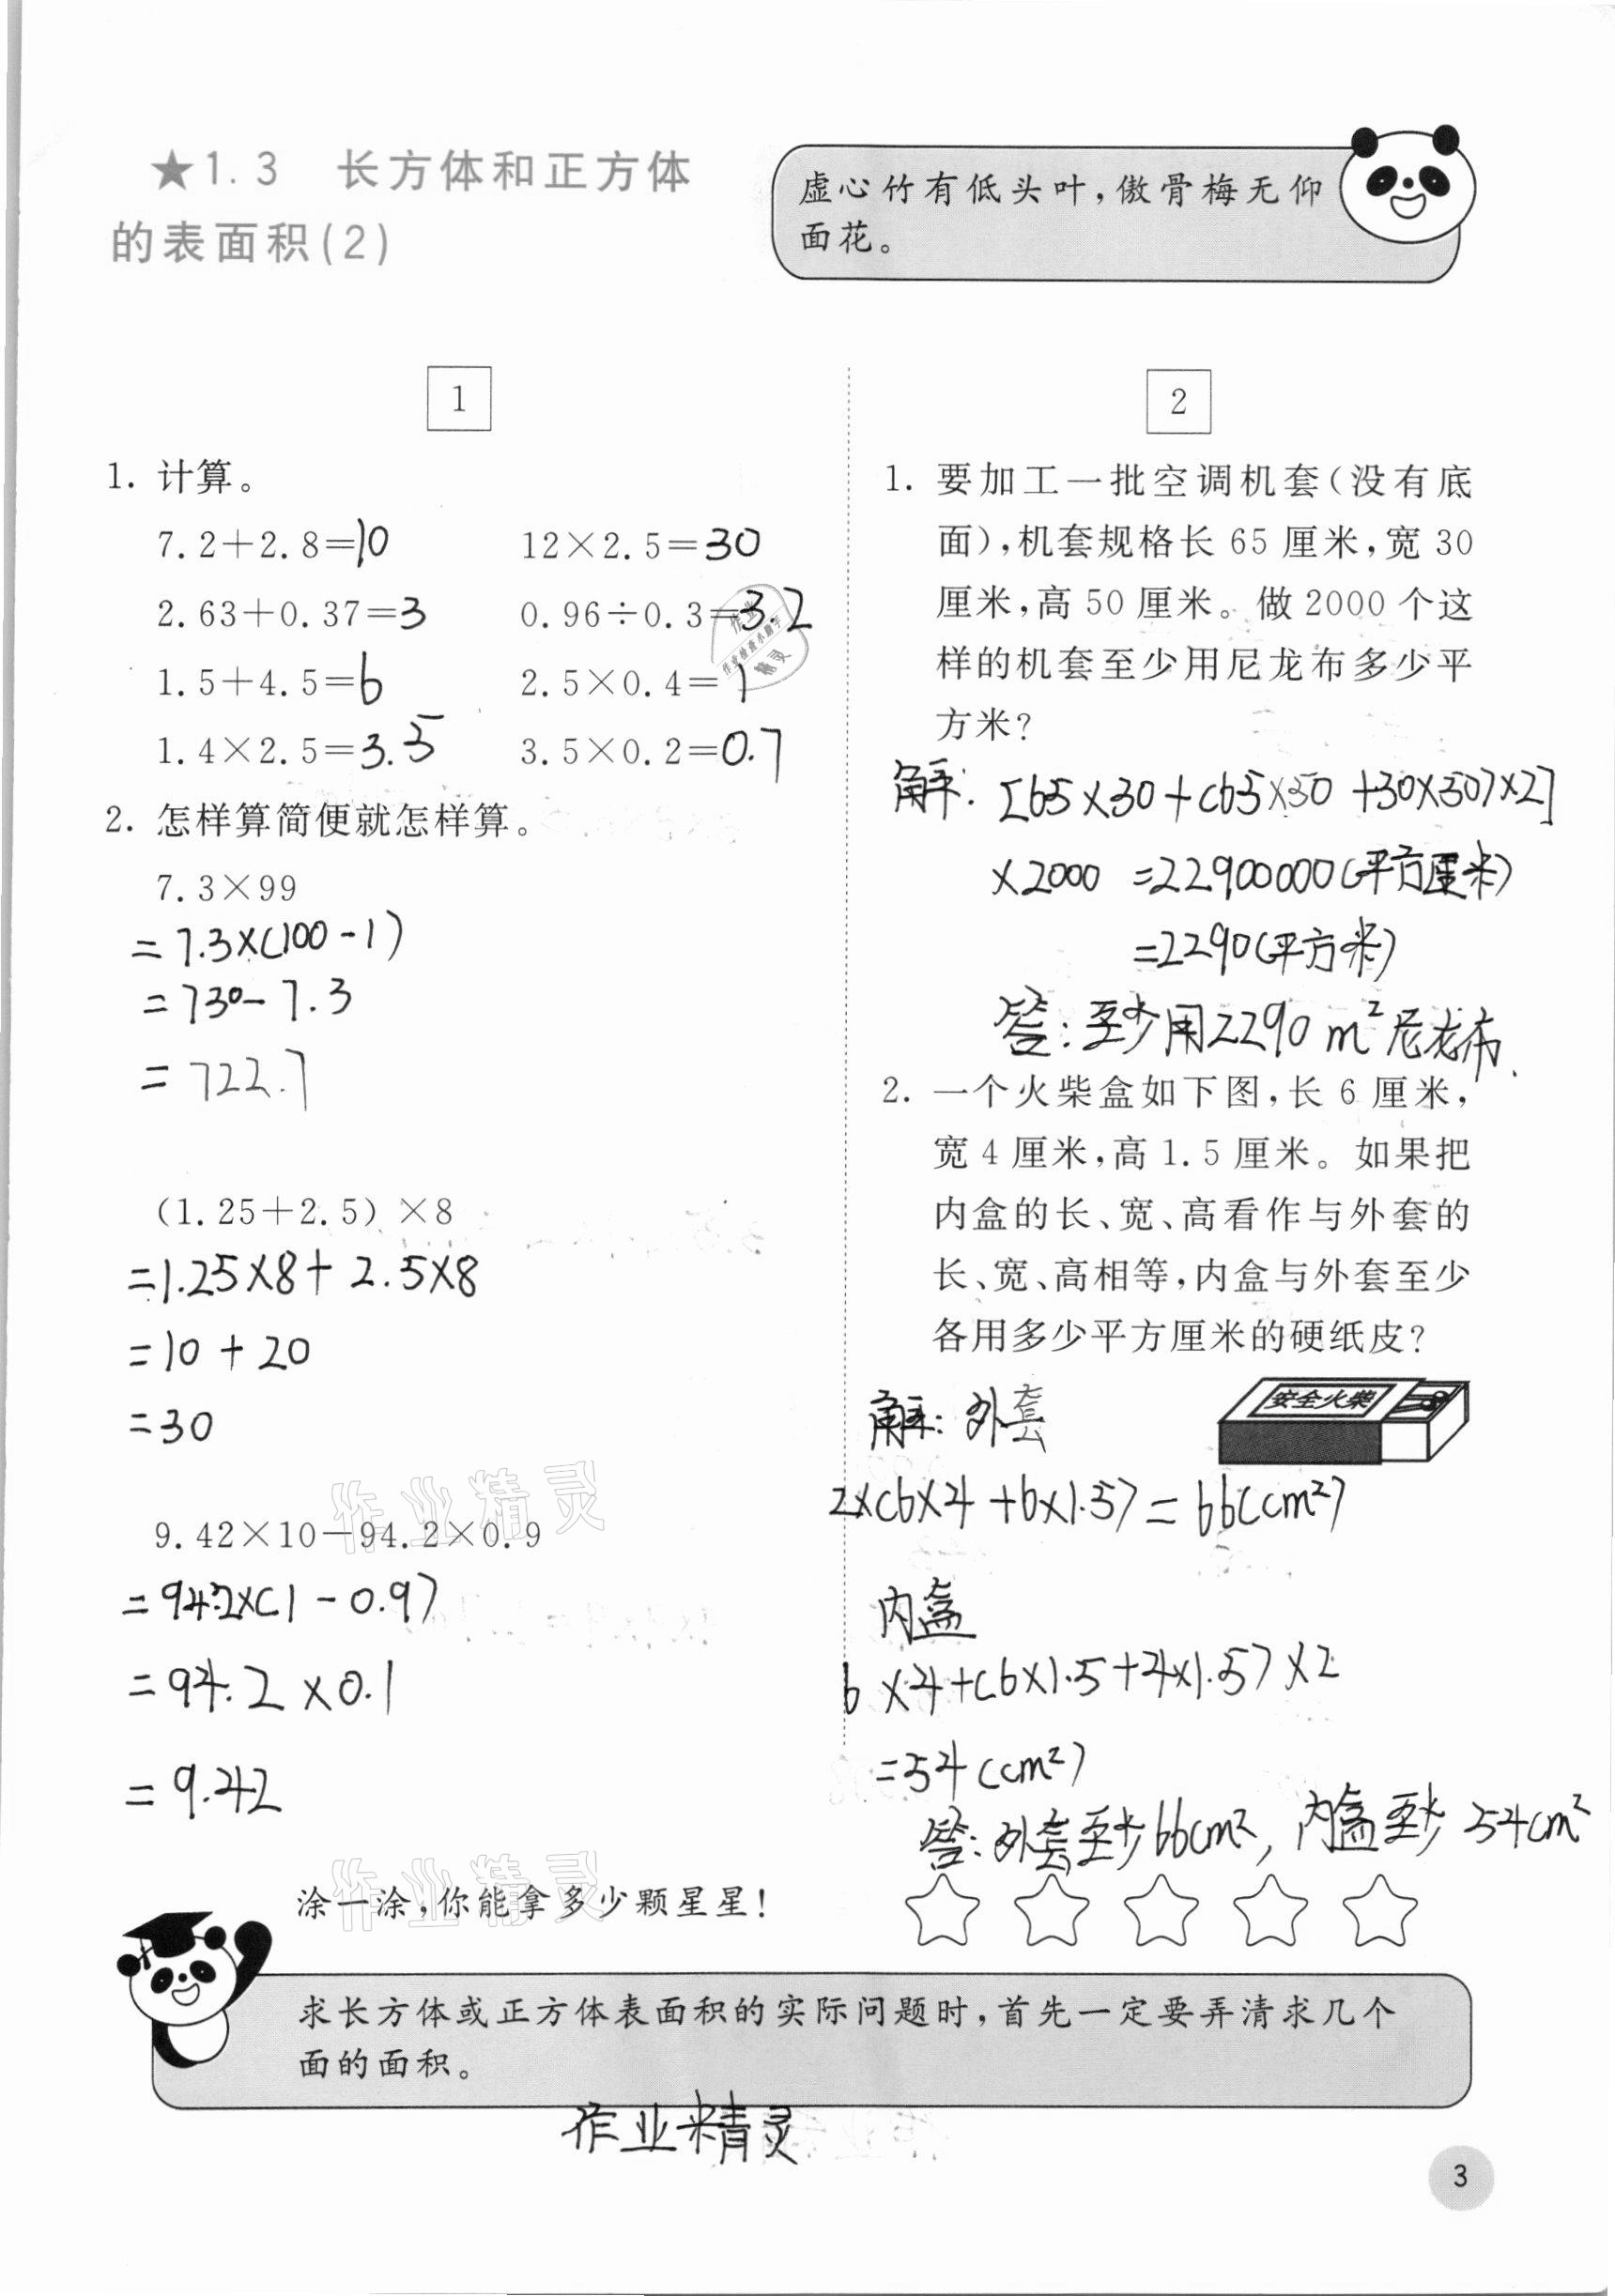 ★1.3 长方体和正方体
的表面积(2)
虚心竹有低头叶，傲骨梅无仰
面花。
1
1. 计算。
7.2+2.8=10 12×2.5=30
2.63+0.37=3 0.96÷0.3=3.2
1.5+4.5=6 2.5×0.4=1
1.4×2.5=3.5 3.5×0.2=0.7
作业
作业检查小助手
精灵
2. 怎样算简便就怎样算。
7.3×99
=7.3×(100-1)
=730-7.3
=722.7
(1.25+2.5)×8
=1.25×8+2.5×8
=10+20
=30
作业精灵
9.42×10-94.2×0.9
=94.2×(1-0.9)
=94.2×0.1
=9.42
2
1. 要加工一批空调机套(没有底
面)，机套规格长 65 厘米，宽 30
厘米，高 50 厘米。做 2000 个这
样的机套至少用尼龙布多少平
方米?
解: [65×30+(65×50+30×50)×2]
×2000 =22900000(平方厘米)
=2290(平方米)
答:至少用2290m²尼龙布.
2. 一个火柴盒如下图，长 6 厘米，
宽 4 厘米，高 1.5 厘米。如果把
内盒的长、宽、高看作与外套的
长、宽、高相等，内盒与外套至少
各用多少平方厘米的硬纸皮?
安全火柴
解: 外套
2×(6×4+6×1.5)=66(cm²)
内盒
6×4+(6×1.5+4×1.5)×2
=54(cm²)
答:外套至少66cm²，内盒至少54cm²
作业精灵
涂一涂，你能拿多少颗星星!
求长方体或正方体表面积的实际问题时，首先一定要弄清求几个
面的面积。
作业精灵
3